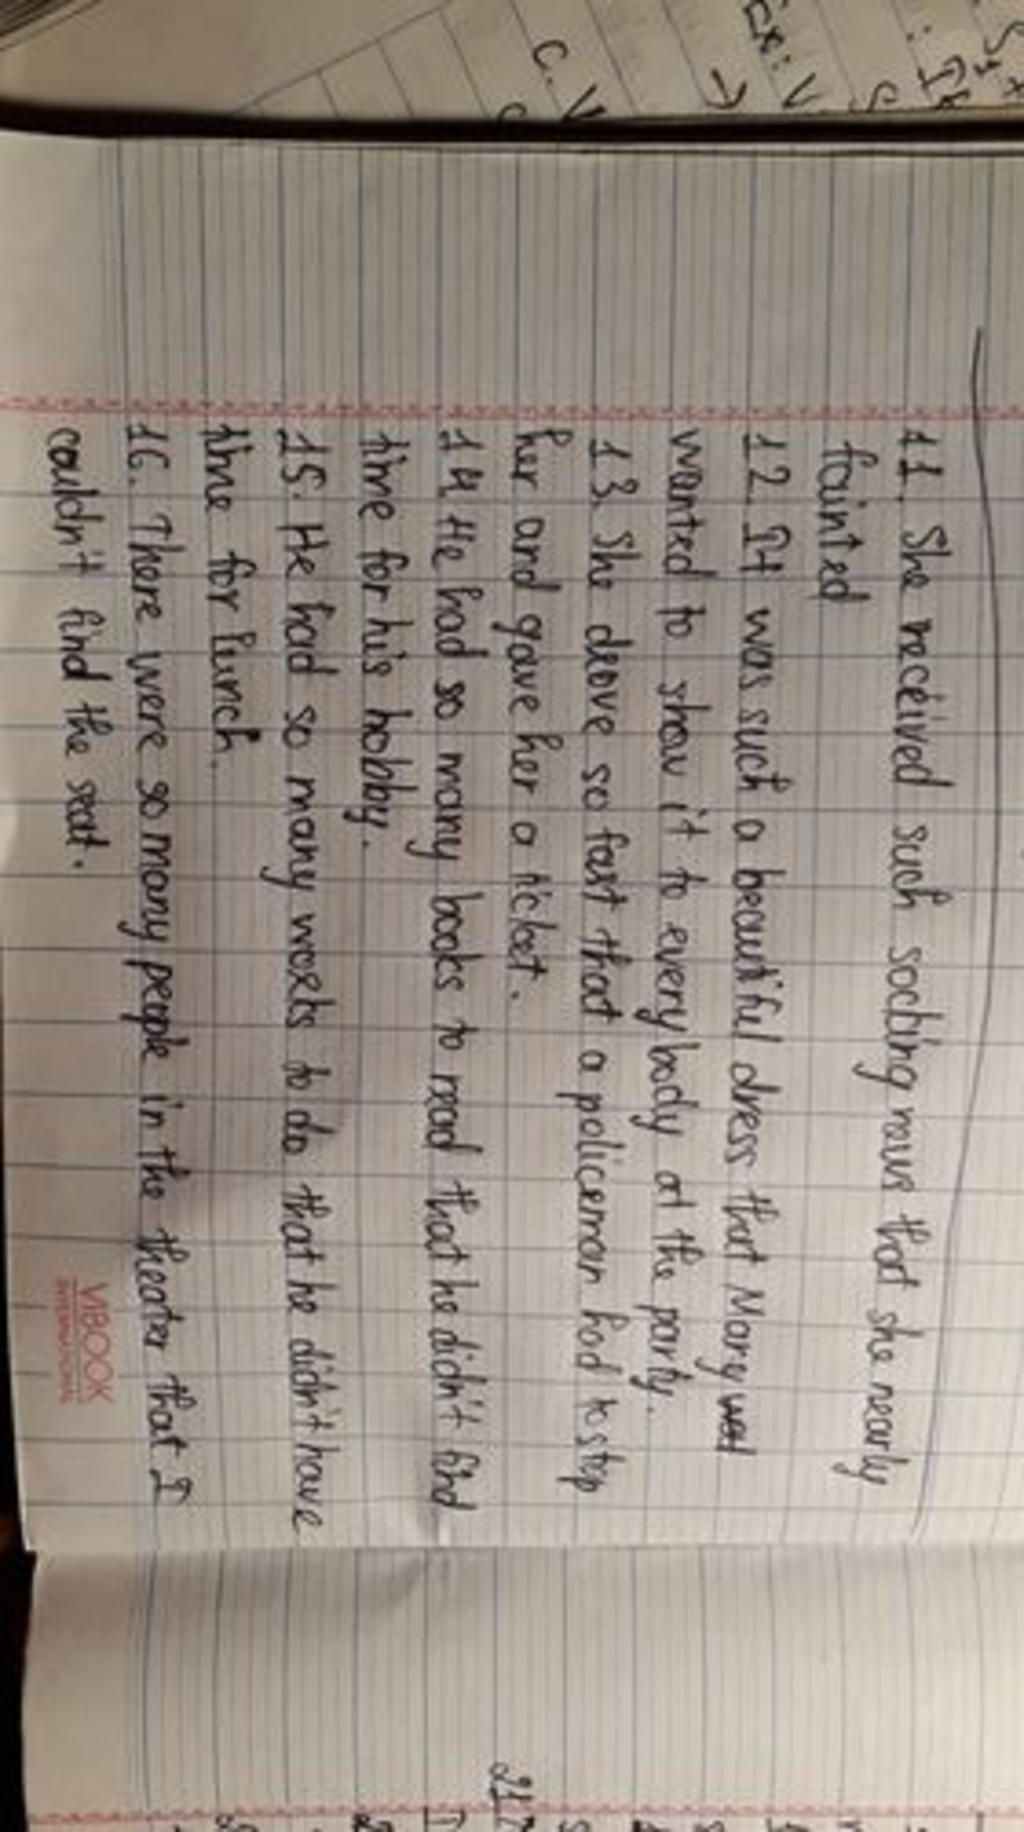 11. She received such socking news that she nearly
fainted
12. It was such a beautiful dress that Mary
wanted to show it to everybody at the party.
13. She drove so fast that a policeman had to stop
her and gave her a ticket.
14 He had so many books to read that he didn't find
time for his hobby.
15. He had so many works to do that he didn't have
time for lunch.
16. There were so many people in the theater that I
couldn't find the seat.
VIBOOK
INTERNATIONAL
Ex: V
C. V
217